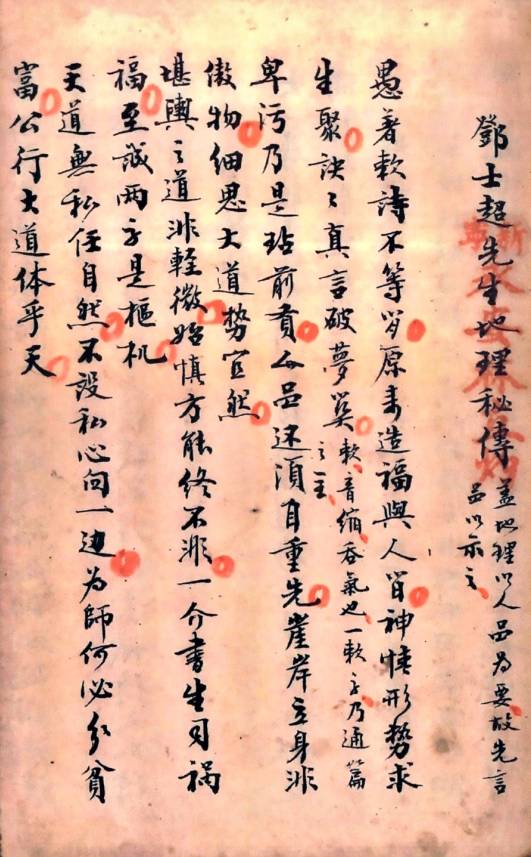 鄧士超先生地理秘傳
盖地理以人品為要故先言
品以示之
愚著欵詩不等閒原来造福與人間神情形勢求
生聚訣〻真言破夢
欵音縮吞氣也一欵字乃通篇
之主
卑污乃是玷前賢人品还須自重先崖岸立身非
傲物細思大道勢宜然
堪輿之道非輕微始慎方能终不非一介書生司禍
福至诚两字是樞机
天道無私任自然不設私心向一边為師何必分貧
富公行大道体乎天